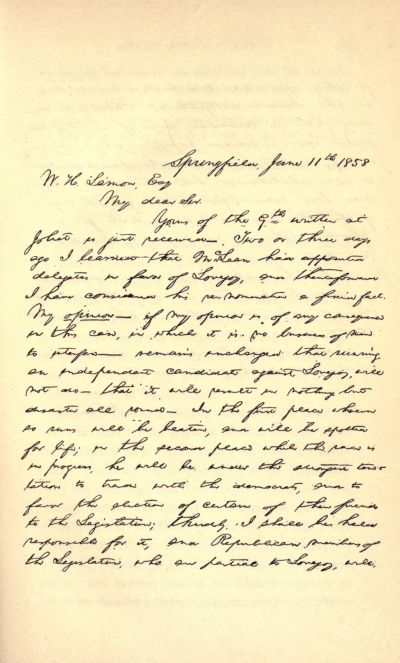 Springfield, June 11th 1858
W. H. Lamon, Esq
My dear Sir.
Yours of the 9th written at
Joliet is just received. Two or three days
ago I learned that McLean had appointed
delegates in favor of Lovejoy, and thenceforward
I have considered his re-nomination a fixed fact.
My opinion — if my opinion is of any consequence
in this case, in which it is no business of mine
to interfere — remains unchanged that running
an independent candidate against Lovejoy, will
not do — that it will result in nothing but
disaster all round — In the first place whoever
so runs will be beaten, and will be spotted
for life; in the second place while the race is
in progress, he will be under the strongest temp-
tation to trade with the democrats, and to
favor the election of certain of their friends
to the Legislature; thirdly, I shall be held
responsible for it, and Republican members of
the Legislature, who are partial to Lovejoy, will,